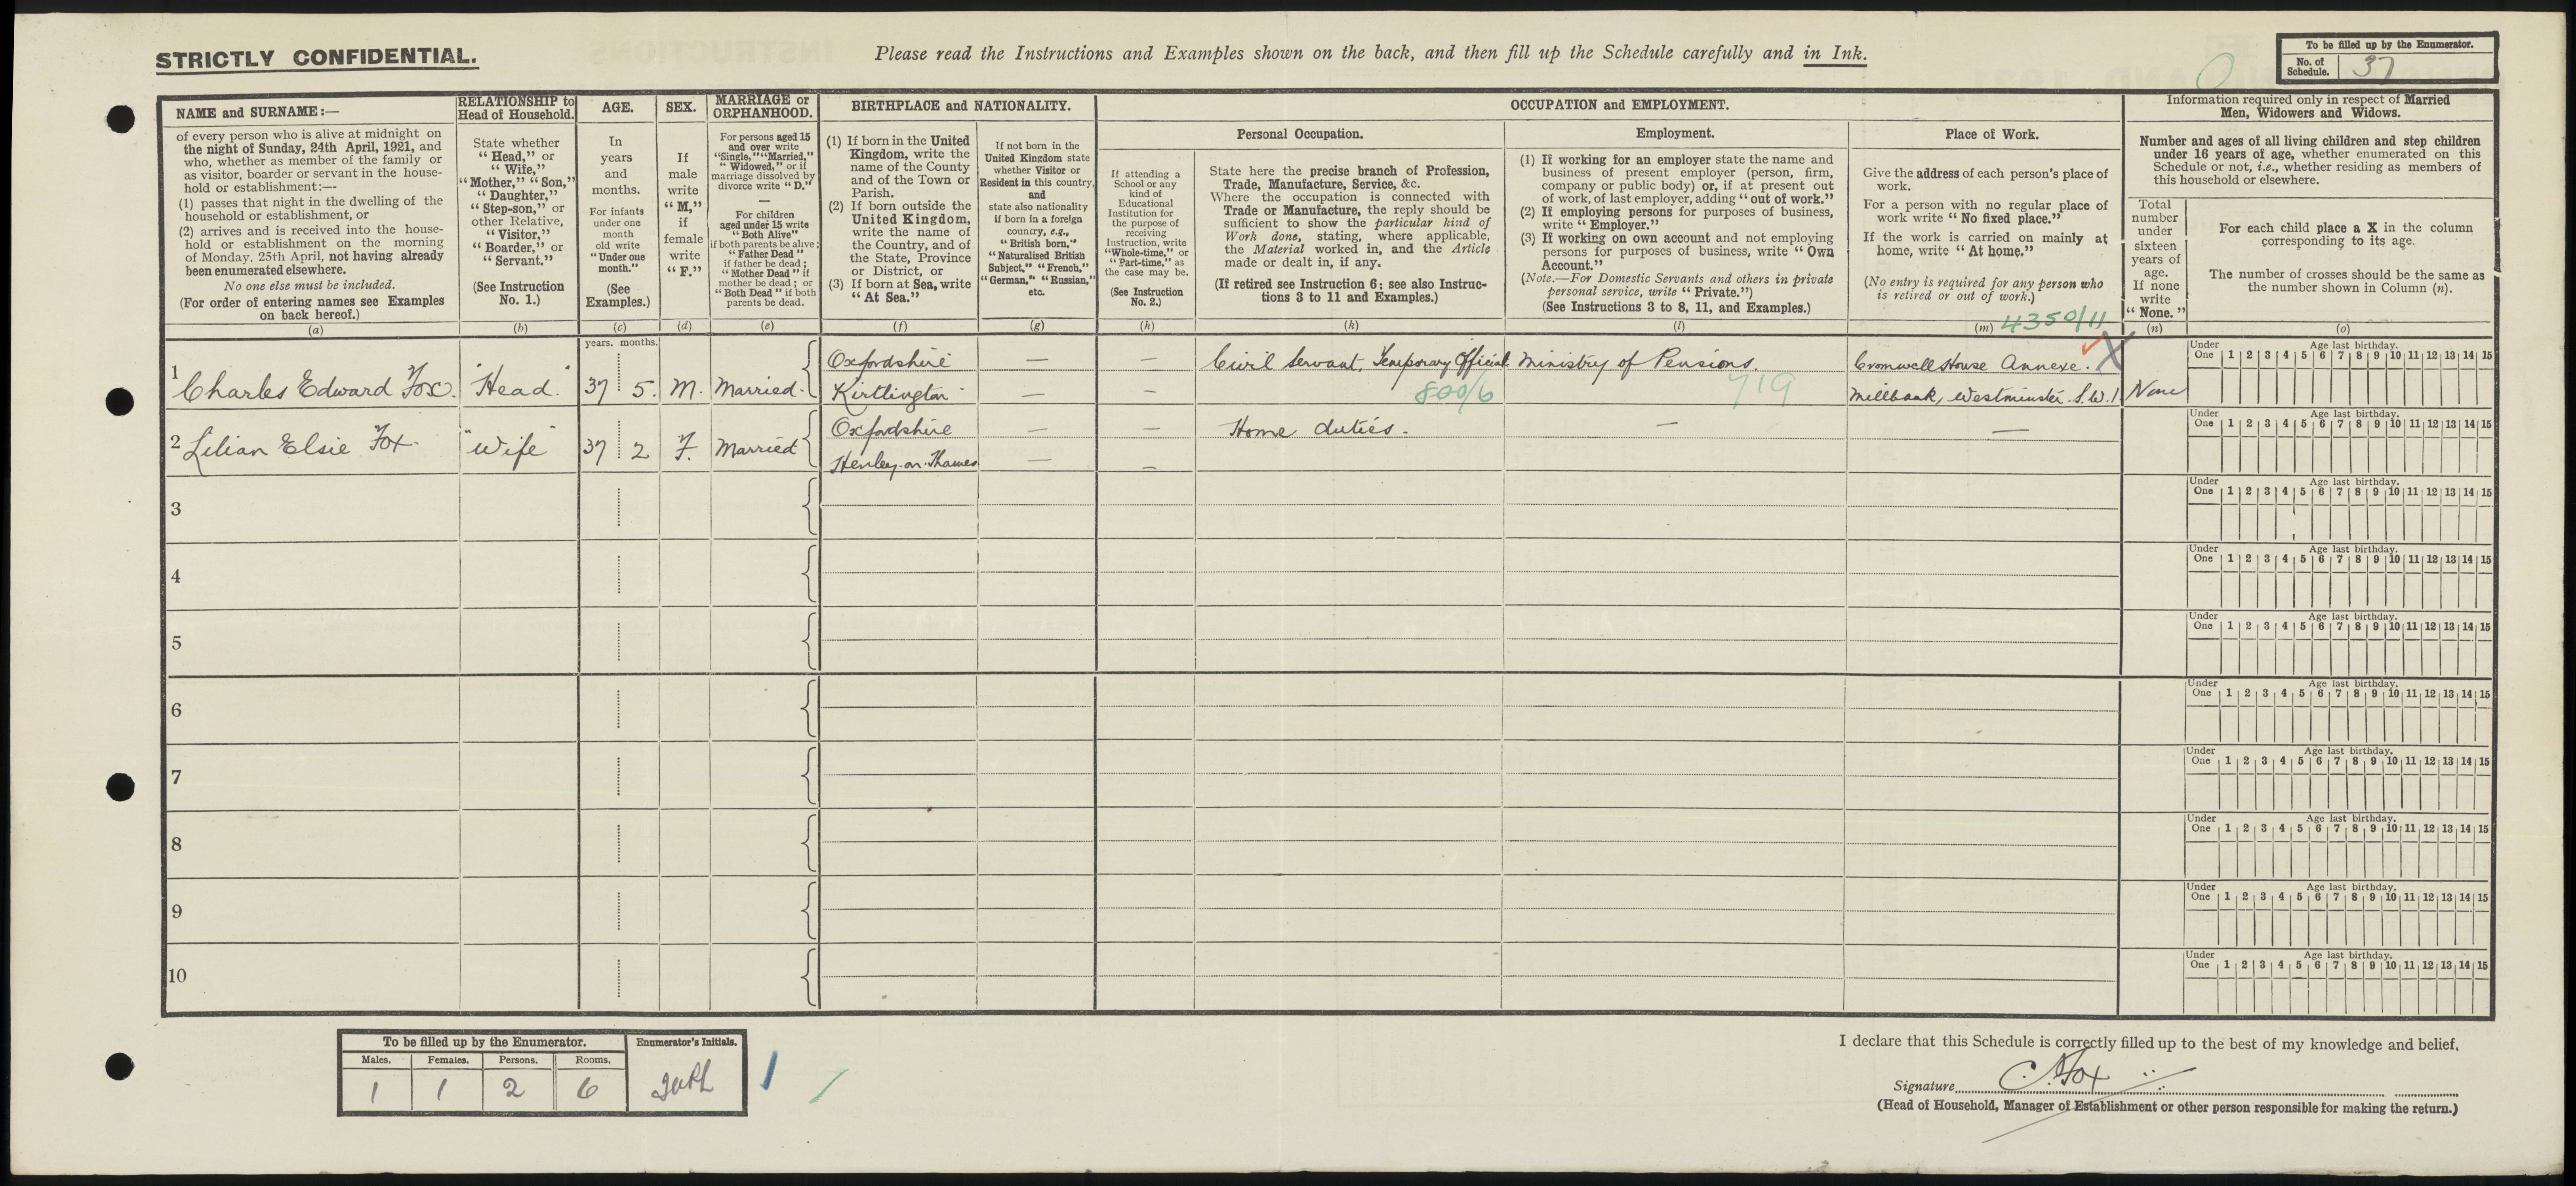 STRICTLY CONFIDENTIAL.
Please read the Instructions and Examples shown on the back, and then fill up the Schedule carefully and in Ink.
To be filled up by the Enumerator.
No. of Schedule. 37
NAME and SURNAME:—
of every person who is alive at midnight on
the night of Sunday, 24th April, 1921, and
who, whether as member of the family or
as visitor, boarder or servant in the house-
hold or establishment:—
(1) passes that night in the dwelling of the
household or establishment, or
(2) arrives and is received into the house-
hold or establishment on the morning
of Monday, 25th April, not having already
been enumerated elsewhere.
No one else must be included.
(For order of entering names see Examples
on back hereof.)
(a)
RELATIONSHIP to
Head of Household.
State whether
"Head," or
"Wife,"
"Mother," "Son,"
"Daughter,"
"Step-son," or
other Relative,
"Visitor,"
"Boarder," or
"Servant."
(See Instruction
No. 1.)
(b)
AGE.
In
years
and
months.
For infants
under one
month
old write
"Under one
month."
(See
Examples.)
(c)
SEX.
If
male
write
"M,"
if
female
write
"F."
(d)
MARRIAGE or
ORPHANHOOD.
For persons aged 15
and over write
"Single," "Married,"
"Widowed," or if
marriage dissolved by
divorce write "D."
—
For children
aged under 15 write
"Both Alive"
if both parents be alive;
"Father Dead"
if father be dead;
"Mother Dead" if
mother be dead; or
"Both Dead" if both
parents be dead.
(e)
BIRTHPLACE and NATIONALITY.
(1) If born in the United
Kingdom, write the
name of the County
and of the Town or
Parish.
(2) If born outside the
United Kingdom,
write the name of
the Country, and of
the State, Province
or District, or
(3) If born at Sea, write
"At Sea."
(f)
If not born in the
United Kingdom state
whether Visitor or
Resident in this country,
and
state also nationality
if born in a foreign
country, e.g.,
"British born,"
"Naturalised British
Subject," "French,"
"German," "Russian,"
etc.
(g)
OCCUPATION and EMPLOYMENT.
If attending a
School or any
kind of
Educational
Institution for
the purpose of
receiving
Instruction, write
"Whole-time," or
"Part-time," as
the case may be.
(See Instruction
No. 2.)
(h)
Personal Occupation.
State here the precise branch of Profession,
Trade, Manufacture, Service, &c.
Where the occupation is connected with
Trade or Manufacture, the reply should be
sufficient to show the particular kind of
Work done, stating, where applicable,
the Material worked in, and the Article
made or dealt in, if any.
(If retired see Instruction 6; see also Instruc-
tions 3 to 11 and Examples.)
(k)
Employment.
(1) If working for an employer state the name and
business of present employer (person, firm,
company or public body) or, if at present out
of work, of last employer, adding "out of work."
(2) If employing persons for purposes of business,
write "Employer."
(3) If working on own account and not employing
persons for purposes of business, write "Own
Account."
(Note.—For Domestic Servants and others in private
personal service, write "Private.")
(See Instructions 3 to 8, 11, and Examples.)
(l)
Place of Work.
Give the address of each person's place of
work.
For a person with no regular place of
work write "No fixed place."
If the work is carried on mainly at
home, write "At home."
(No entry is required for any person who
is retired or out of work.)
(m) 4350/11
Information required only in respect of Married
Men, Widowers and Widows.
Number and ages of all living children and step children
under 16 years of age, whether enumerated on this
Schedule or not, i.e., whether residing as members of
this household or elsewhere.
Total
number
under
sixteen
years of
age.
If none
write
"None."
(n)
For each child place a X in the column
corresponding to its age.
The number of crosses should be the same as
the number shown in Column (n).
(o)
years. months.
1 Charles Edward Fox. "Head." 37 5. M. Married. Oxfordshire Kirtlington — — — — Civil Servant, Temporary Official 800/6 Ministry of Pensions. 719 Cromwell House Annexe. Millbank, Westminster. S.W.1. None
Under One Age last birthday. 1 2 3 4 5 6 7 8 9 10 11 12 13 14 15
2 Lilian Elsie Fox. "Wife" 37 2 F. Married Oxfordshire Henley-on-Thames — — — — Home duties. — —
Under One Age last birthday. 1 2 3 4 5 6 7 8 9 10 11 12 13 14 15
3
Under One Age last birthday. 1 2 3 4 5 6 7 8 9 10 11 12 13 14 15
4
Under One Age last birthday. 1 2 3 4 5 6 7 8 9 10 11 12 13 14 15
5
Under One Age last birthday. 1 2 3 4 5 6 7 8 9 10 11 12 13 14 15
6
Under One Age last birthday. 1 2 3 4 5 6 7 8 9 10 11 12 13 14 15
7
Under One Age last birthday. 1 2 3 4 5 6 7 8 9 10 11 12 13 14 15
8
Under One Age last birthday. 1 2 3 4 5 6 7 8 9 10 11 12 13 14 15
9
Under One Age last birthday. 1 2 3 4 5 6 7 8 9 10 11 12 13 14 15
10
Under One Age last birthday. 1 2 3 4 5 6 7 8 9 10 11 12 13 14 15
To be filled up by the Enumerator.
Enumerator's Initials.
Males. Females. Persons. Rooms.
1 1 2 6
I declare that this Schedule is correctly filled up to the best of my knowledge and belief,
Signature C. Fox
(Head of Household, Manager of Establishment or other person responsible for making the return.)